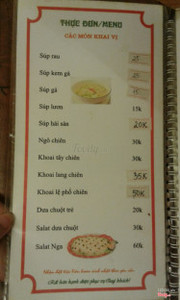 THỰC ĐƠN/MENU
CÁC MÓN KHAI VỊ
Súp rau
Súp kem gà
Súp gà
Súp lươn 15k
Súp hải sản 20K
Ngô chiên 30k
Khoai tây chiên 30k
Khoai lang chiên 35K
Khoai lệ phố chiên 50K
Dưa chuột trẻ 20k
Salat dưa chuột 30k
Salat Nga 60k